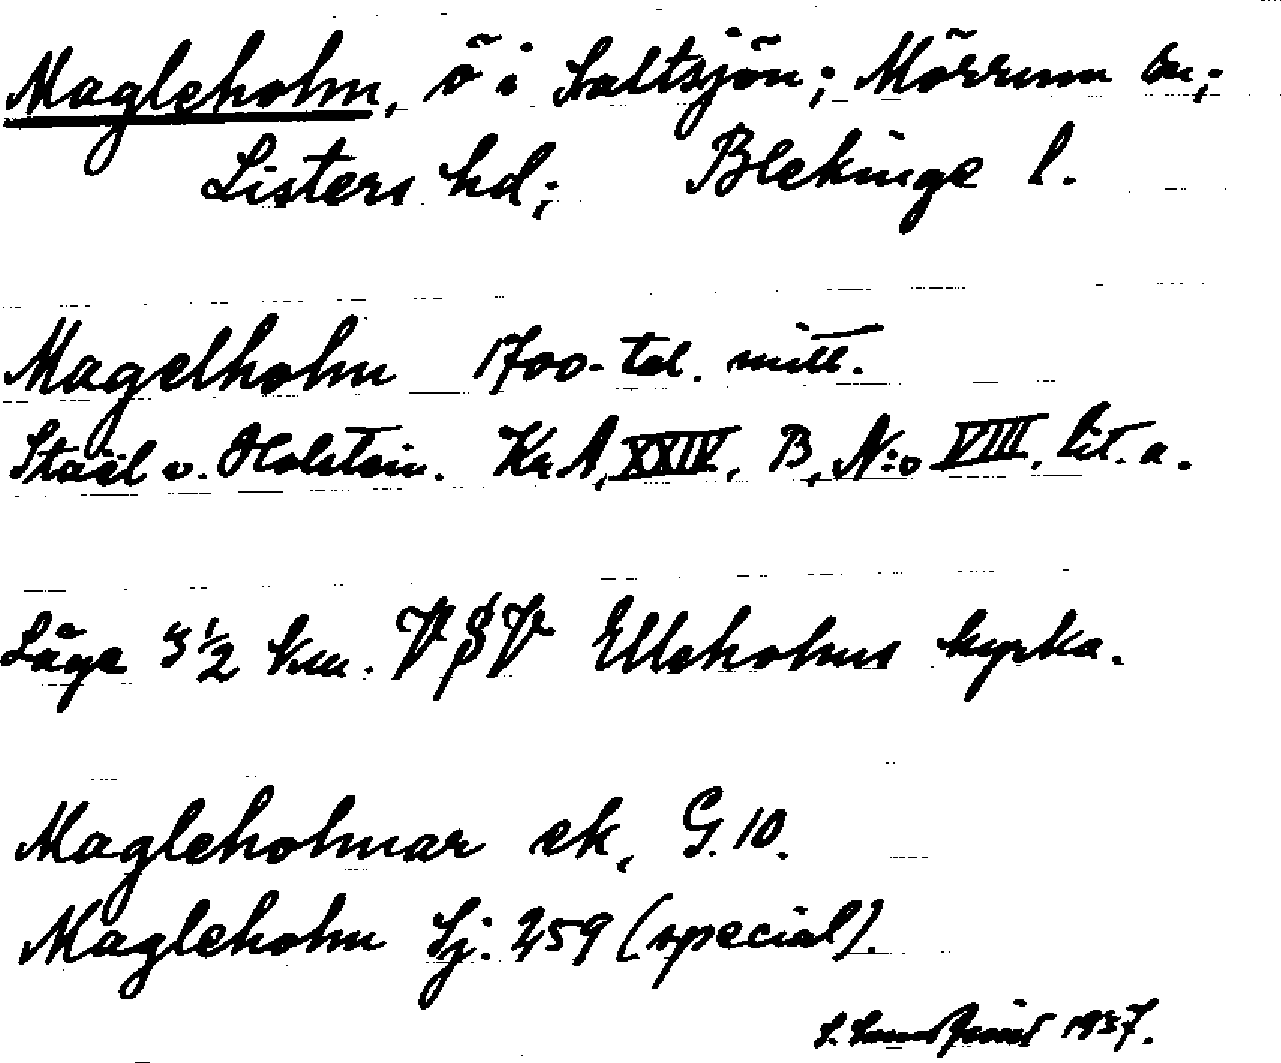 Magleholm, ö i Saltsjön; Mörrum sn;
Listers hd; Blekinge l.
Magelholm 1700-tal. mitt.
Staël v. Holstein. Kr A, XXIV, B, N:o VIII, lit. a.
Läge 3 1/2 km. V Elleholms kyrka.
Magleholmar ek, G. 10.
Magleholm Sj. 259 (special).
1937.